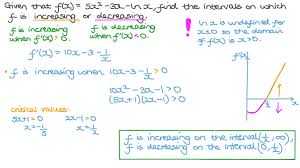 Given that f(x) = 5x² - 3x - ln x, find the intervals on which
f is increasing or decreasing.
f is increasing when f'(x) > 0.
f is decreasing when f'(x) < 0.
! ln x is undefined for x ≤ 0 so the domain of f(x) is x > 0.
f'(x) = 10x - 3 - 1/x
f is increasing when 10x - 3 - 1/x > 0
10x² - 3x - 1 > 0
(5x + 1)(2x - 1) > 0
critical values:
5x + 1 = 0 2x - 1 = 0
x = -1/5 x = 1/2
f'(x)
1/2
x
f is increasing on the interval (1/2, ∞),
f is decreasing on the interval (0, 1/2)